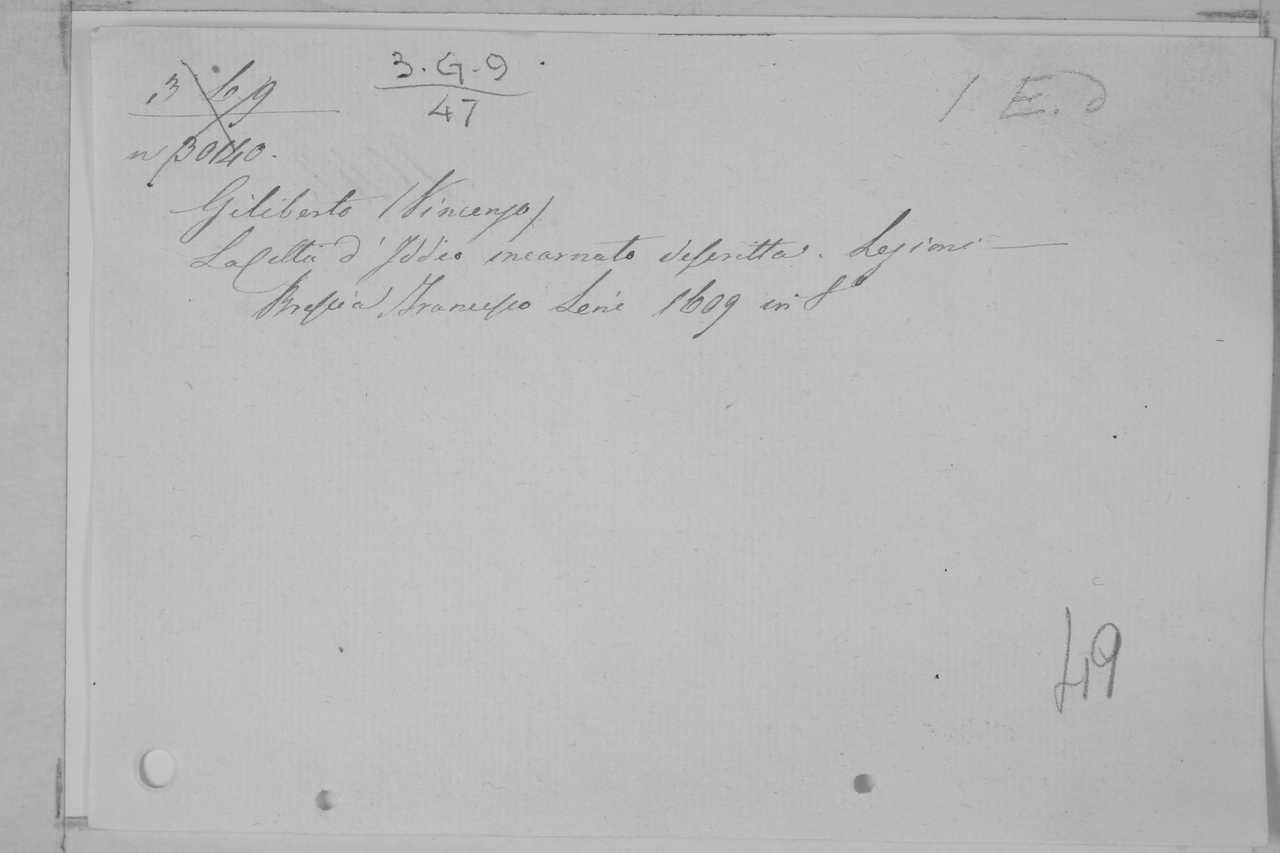 3 G 9
n 3040.
3. G. 9.
47
1 E. d
Giliberto (Vincenzo)
La Città d'Iddio incarnato descritta. Lezioni —
Brescia Francesco 1609 in 8°
49